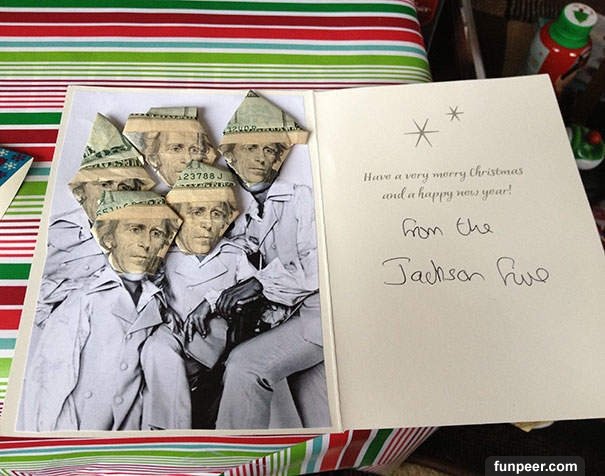 123788J
Have a very merry Christmas
and a happy new year!
from the
Jackson Five
funpeer.com